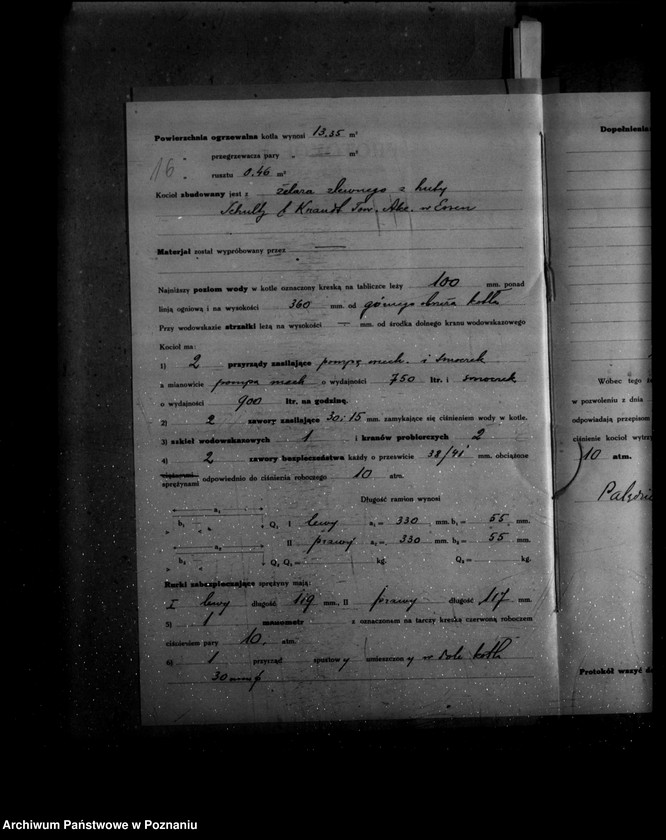 Powierzchnia ogrzewalna kotła wynosi 13.35 m²
16
" przegrzewacza pary . — m²
" rusztu 0.46 m²
Kocioł zbudowany jest z żelaza zlewnego z huty
Schultz & Knaudt Tow. Akc. w Essen
Materjał został wypróbowany przez —
Najniższy poziom wody w kotle oznaczony kreską na tabliczce leży 100 mm. ponad
linją ogniową i na wysokości 360 mm. od górnego kotła
Przy wodowskazie strzałki leżą na wysokości — mm. od środka dolnego kranu wodowskazowego
Kocioł ma:
1) 2 przyrządy zasilające pompę mech. i smoczek
a mianowicie pompa mech o wydajności 750 ltr. i smoczek
o wydajności 900 ltr. na godzinę.
2) 2 zawory zasilające 30 i 15 mm. zamykające się ciśnieniem wody w kotle.
3) szkieł wodowskazowych 1 i kranów probierczych 2
4) 2 zawory bezpieczeństwa każdy o prześwicie 38/41 mm. obciążone
ciężarami
sprężynami odpowiednio do ciśnienia roboczego 10 atm.
Długość ramion wynosi
a₁ b₁ Q₁ I lewy a₁ = 330 mm. b₁ = 55 mm.
a₂ II prawy a₂ = 330 mm. b₂ = 55 mm.
b₂ Q₂ Q₁ = kg. Q₂ = kg.
Rurki zabezpieczające sprężyny mają:
I lewy długość 119 mm., II prawy długość 117 mm.
5) 1 manometr z oznaczonam na tarczy kreską czerwoną roboczem
ciśnieniem pary 10. atm.
6) 1 przyrząd spustowy umieszczony w dole kotła
30 mm ϕ
Dopełnienia
Wobec tego
w pozwoleniu z dnia
odpowiadają przepisom
ciśnienie kocioł
10 atm.
Protokół wszyć do
Archiwum Państwowe w Poznaniu